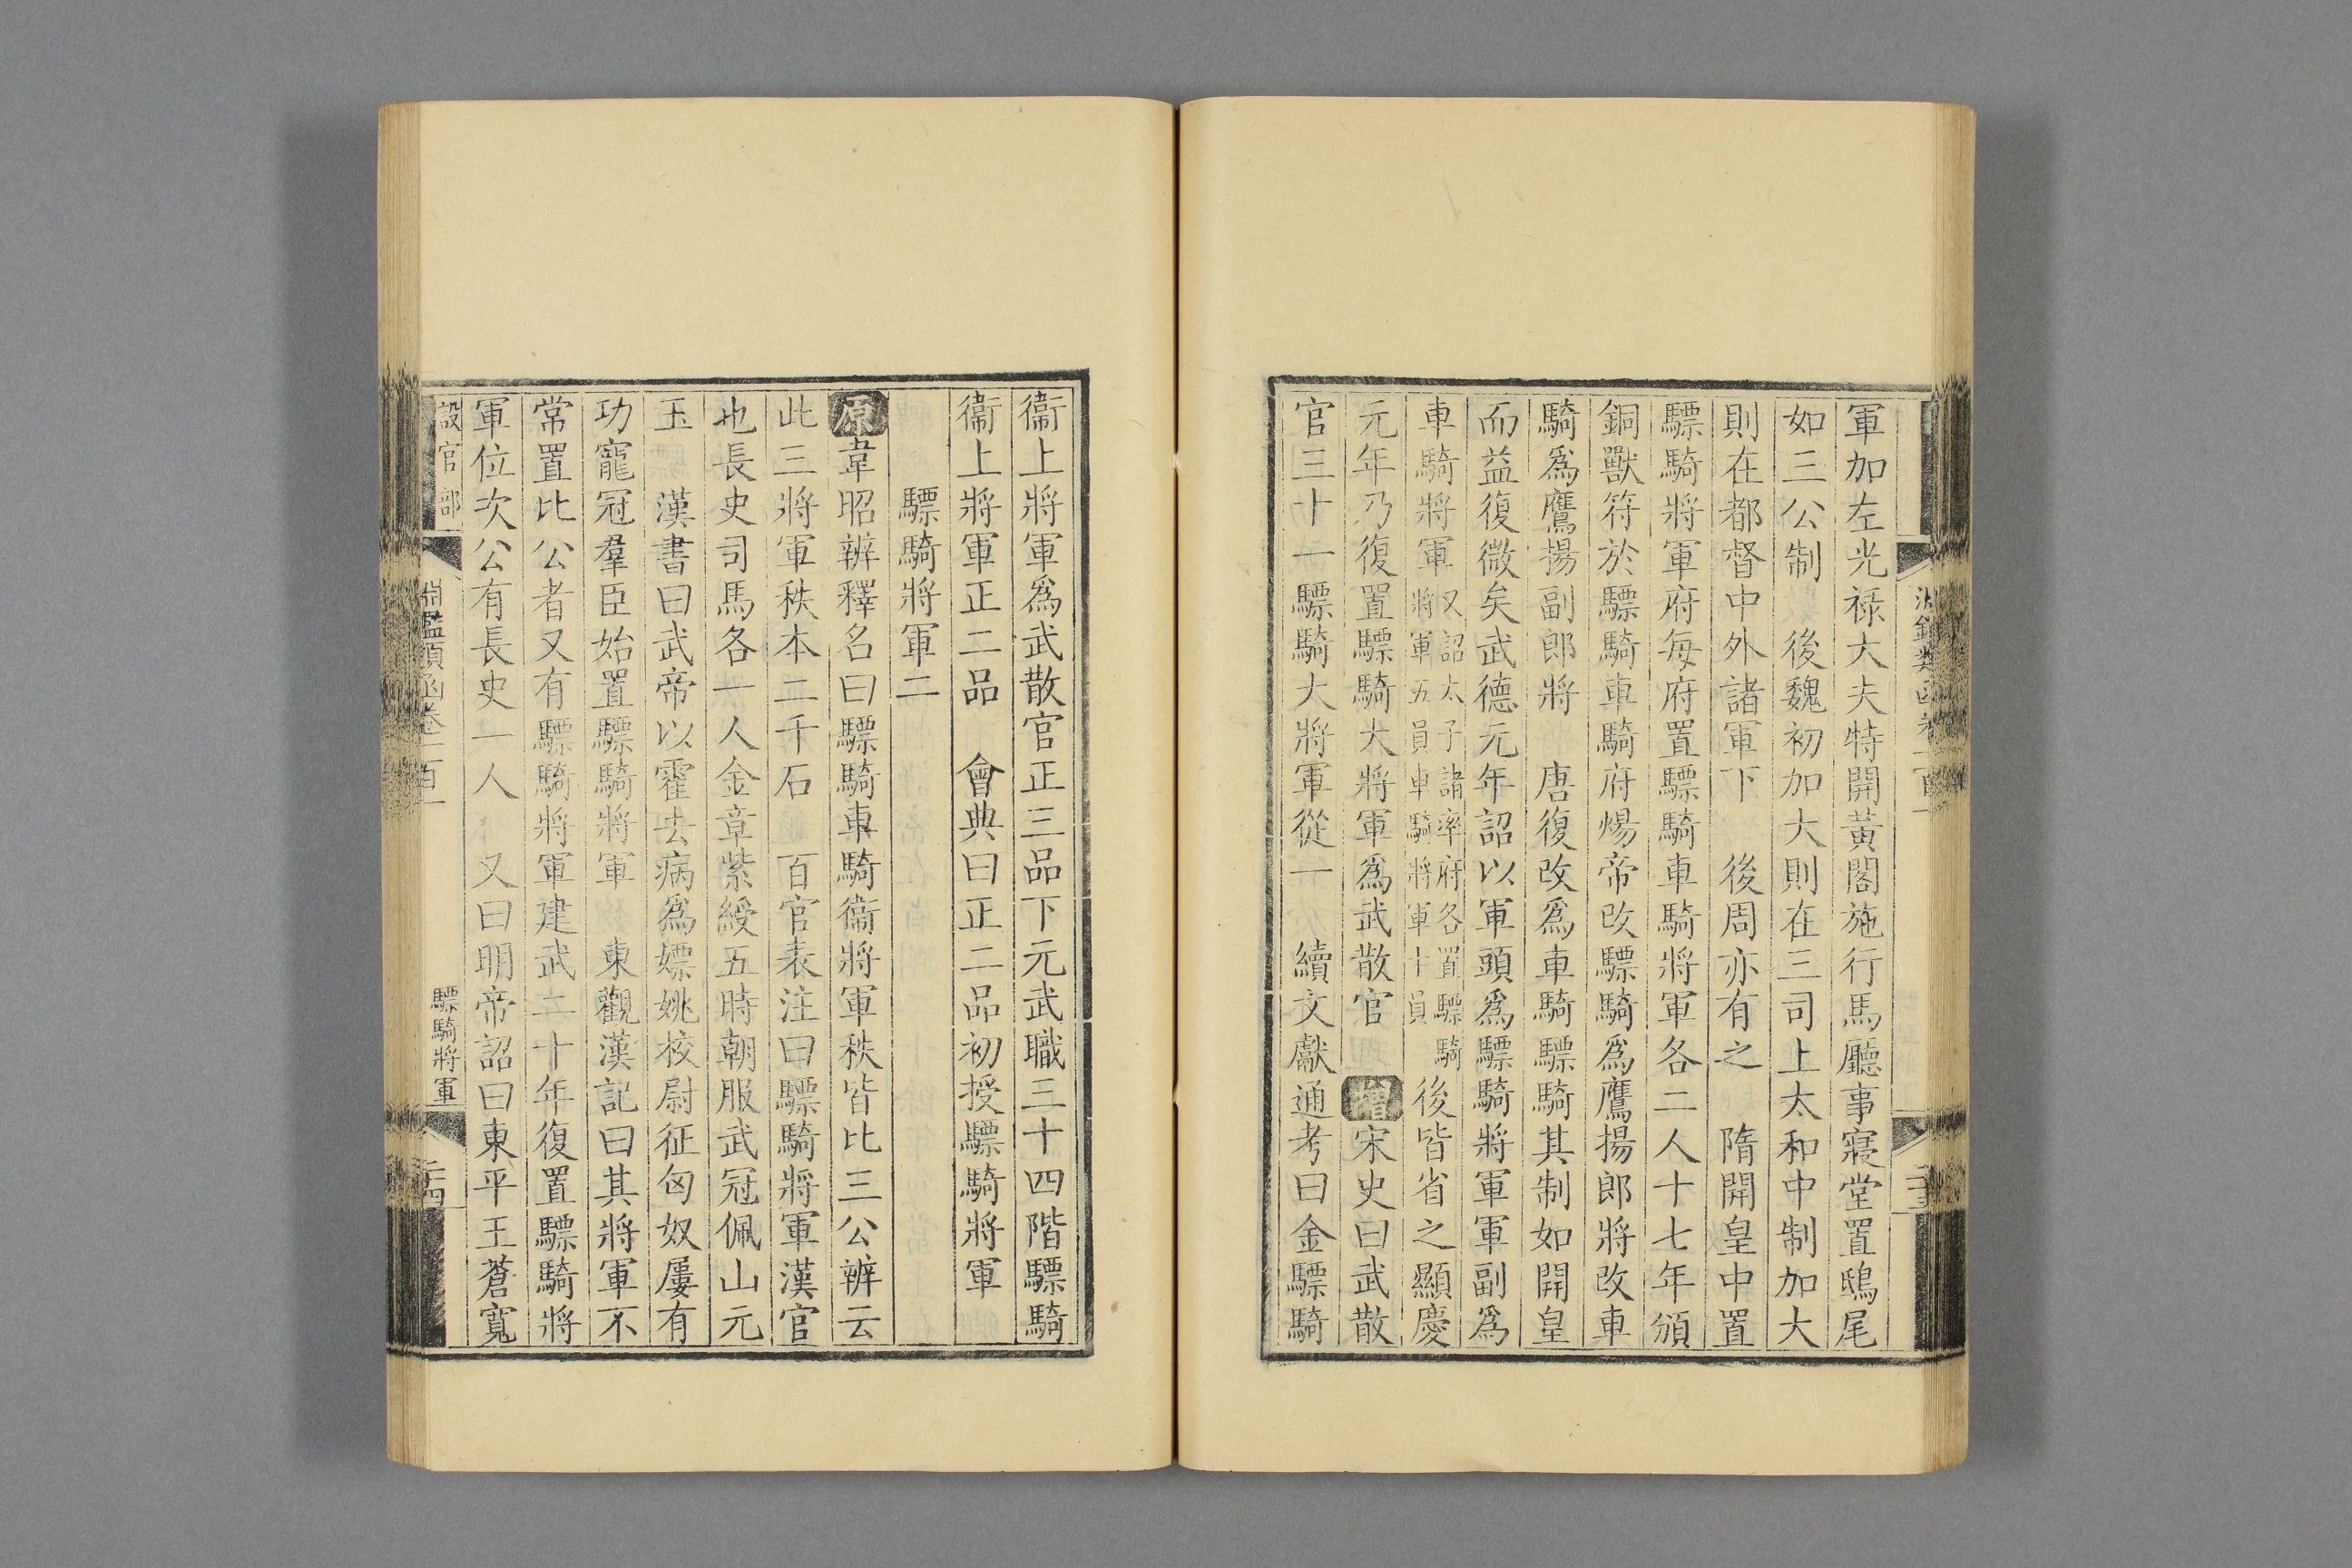 軍加左光祿大夫特開黃閣施行馬廳事寢堂置鴟尾
如三公制 後魏初加大則在三司上太和中制加大
則在都督中外諸軍下 後周亦有之 隋開皇中置
驃騎將軍府每府置驃騎車騎將軍各二人十七年頒
銅獸符於驃騎車騎府煬帝改驃騎爲鷹揚郎將改車
騎爲鷹揚副郎將 唐復改爲車騎驃騎其制如開皇
而益復微矣武德元年詔以軍頭爲驃騎將軍軍副爲
車騎將軍又詔太子諸率府各置驃騎將軍五員車騎將軍十員後皆省之顯慶
元年乃復置驃騎大將軍爲武散官 增宋史曰武散
官三十一驃騎大將軍從一 續文獻通考曰金驃騎
衞上將軍爲武散官正三品下元武職三十四階驃騎
衞上將軍正二品 會典曰正二品初授驃騎將軍
驃騎將軍二
原韋昭辨釋名曰驃騎車騎衞將軍秩皆比三公辨云
此三將軍秩本二千石 百官表注曰驃騎將軍漢官
也長史司馬各一人金章紫綬五時朝服武冠佩山元
玉 漢書曰武帝以霍去病爲嫖姚校尉征匈奴屢有
功寵冠羣臣始置驃騎將軍 東觀漢記曰其將軍不
常置比公者又有驃騎將軍建武二十年復置驃騎將
軍位次公有長史一人 又曰明帝詔曰東平王蒼寬
設官部 淵鑑類函卷一百一 驃騎將軍 二十四